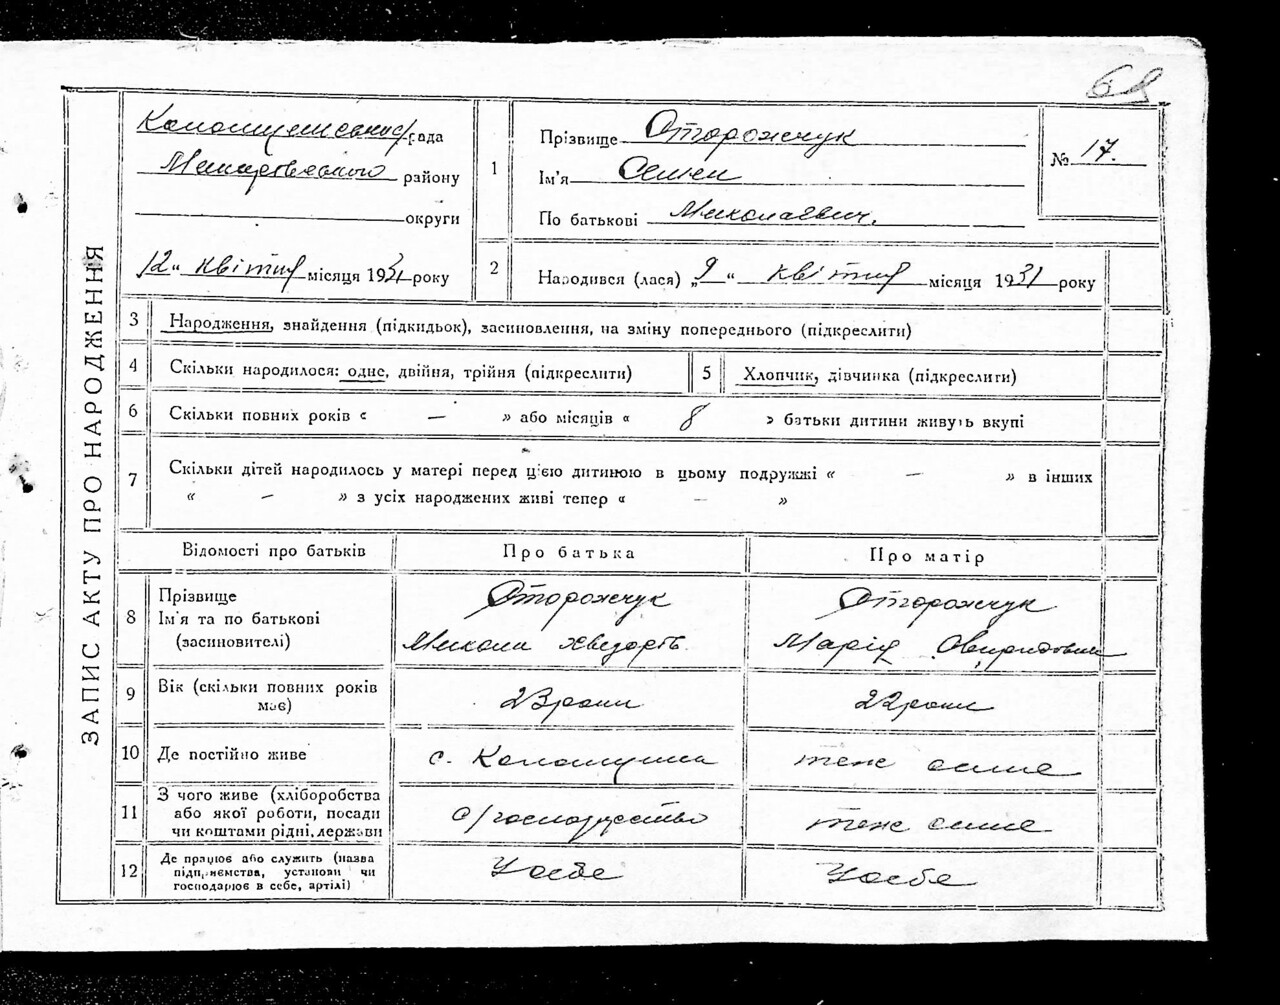 69
ЗАПИС АКТУ ПРО НАРОДЖЕННЯ
рада
району
округи
12 „ квітня місяця 1931 року
1
Прізвище Сторожчук
Ім'я Семен
По батькові Миколаєвич.
№ 17.
2
Народився (лася) „ 9 “ квітня місяця 1931 року
3 Народження, знайдення (підкидьок), засиновлення, на зміну попереднього (підкреслити)
4 Скільки народилося: одне, двійня, трійня (підкреслити)
5 Хлопчик, дівчинка (підкреслиги)
6 Скільки повних років « — » або місяців « 8 » батьки дитини живуть вкупі
7 Скільки дітей народилось у матері перед цією дитиною в цьому подружжі « — » в інших
« — » з усіх народжених живі тепер « — »
Відомості про батьків
Про батька
Про матір
8 Прізвище
Ім'я та по батькові
(засиновителі)
Сторожчук
Микола Хведорів
Сторожчук
Марія Свиридовна
9 Вік (скільки повних років
має)
23 роки
22 роки
10 Де постійно живе
с.
теж саме
11 З чого живе (хліборобства
або якої роботи, посади
чи коштами рідні, держави
с/господарство
теж саме
12 Де працює або служить (назва
підприємства, установи чи
господарює в себе, артілі)
У себе
У себе